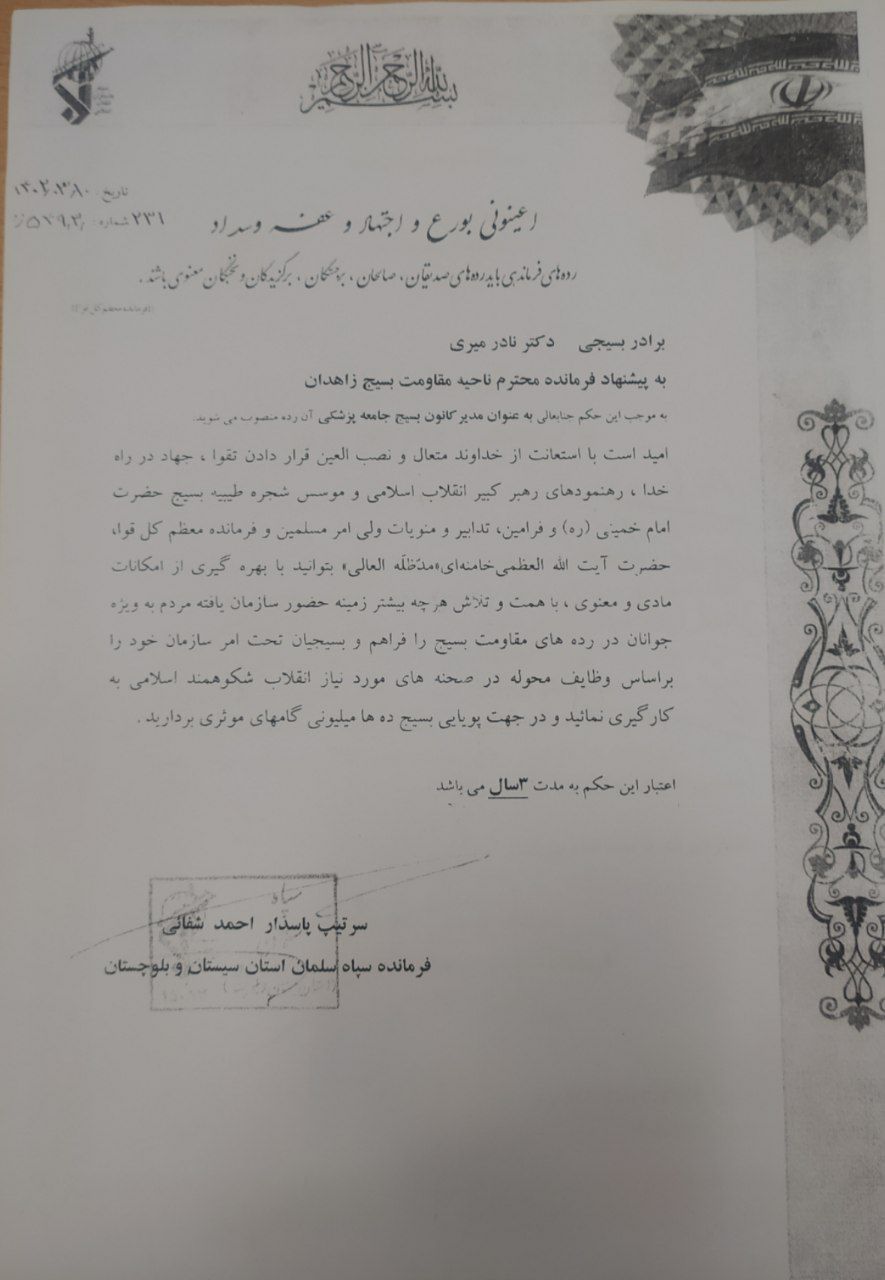 بسم الله الرحمن الرحیم
تاریخ:
شماره: ۲۳۱
اعینونی بورع و اجتهاد و عفه وسداد
رده‌های فرماندهی باید رده‌های صدیقان، صالحان، برجستگان، برگزیدگان و نخبگان معنوی باشند.
برادر بسیجی دکتر نادر میری
به پیشنهاد فرمانده محترم ناحیه مقاومت بسیج زاهدان
به موجب این حکم جنابعالی به عنوان مدیر کانون بسیج جامعه پزشکی آن رده منصوب می شوید.
امید است با استعانت از خداوند متعال و نصب العین قرار دادن تقوا ، جهاد در راه
خدا ، رهنمودهای رهبر کبیر انقلاب اسلامی و موسس شجره طیبیه بسیج حضرت
امام خمینی (ره) و فرامین، تدابیر و منویات ولی امر مسلمین و فرمانده معظم کل قوا،
حضرت آیت الله العظمی‌خامنه‌ای«مدّظلّه العالی» بتوانید با بهره گیری از امکانات
مادی و معنوی ، با همت و تلاش هرچه بیشتر زمینه حضور سازمان یافته مردم به ویژه
جوانان در رده های مقاومت بسیج را فراهم و بسیجیان تحت امر سازمان خود را
براساس وظایف محوله در صحنه های مورد نیاز انقلاب شکوهمند اسلامی به
کارگیری نمائید و در جهت پویایی بسیج ده ها میلیونی گامهای موثری بردارید .
اعتبار این حکم به مدت ۳سال می باشد
سپاه
سرتیپ پاسدار احمد شفائی
فرمانده سپاه سلمان استان سیستان و بلوچستان